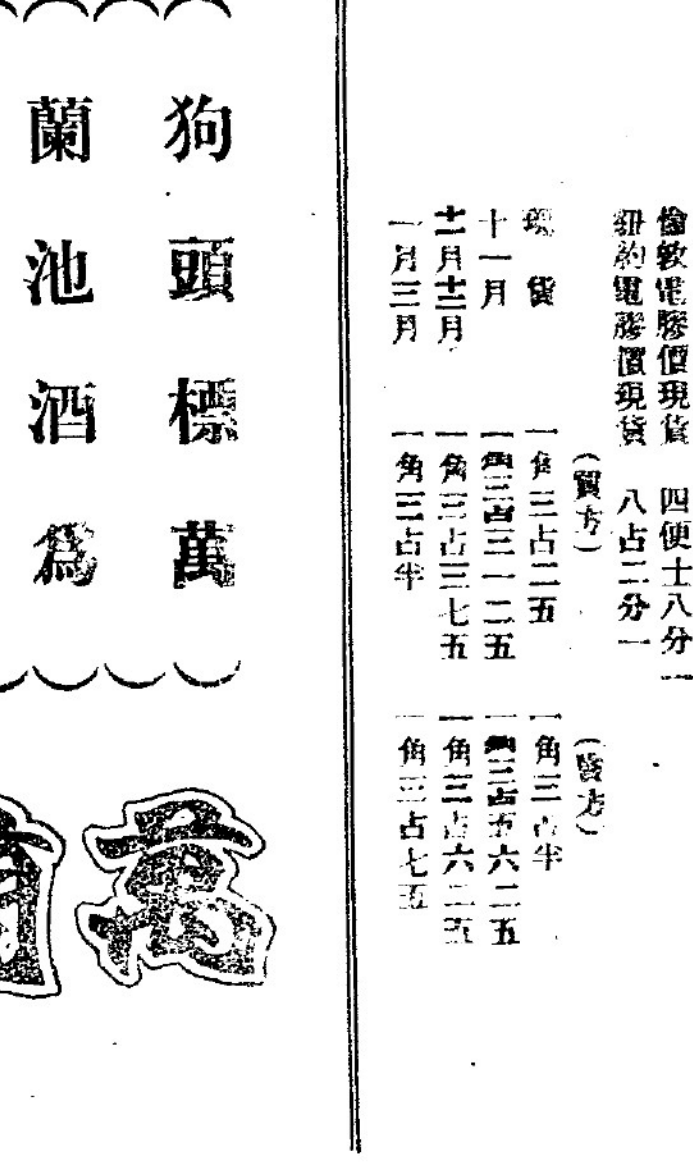 倫敦電膠價現貨　四便士八分一
紐約電膠價現貨　八占二分一
（買方）　（賣方）
現貨　一角三占二五　一角三占半
十一月　一角三占三一二五　一角三占五六二五
十二月十二月　一角三占三七五　一角三占六二五
一月三月　一角三占半　一角三占七五
狗頭標萬
蘭池酒為